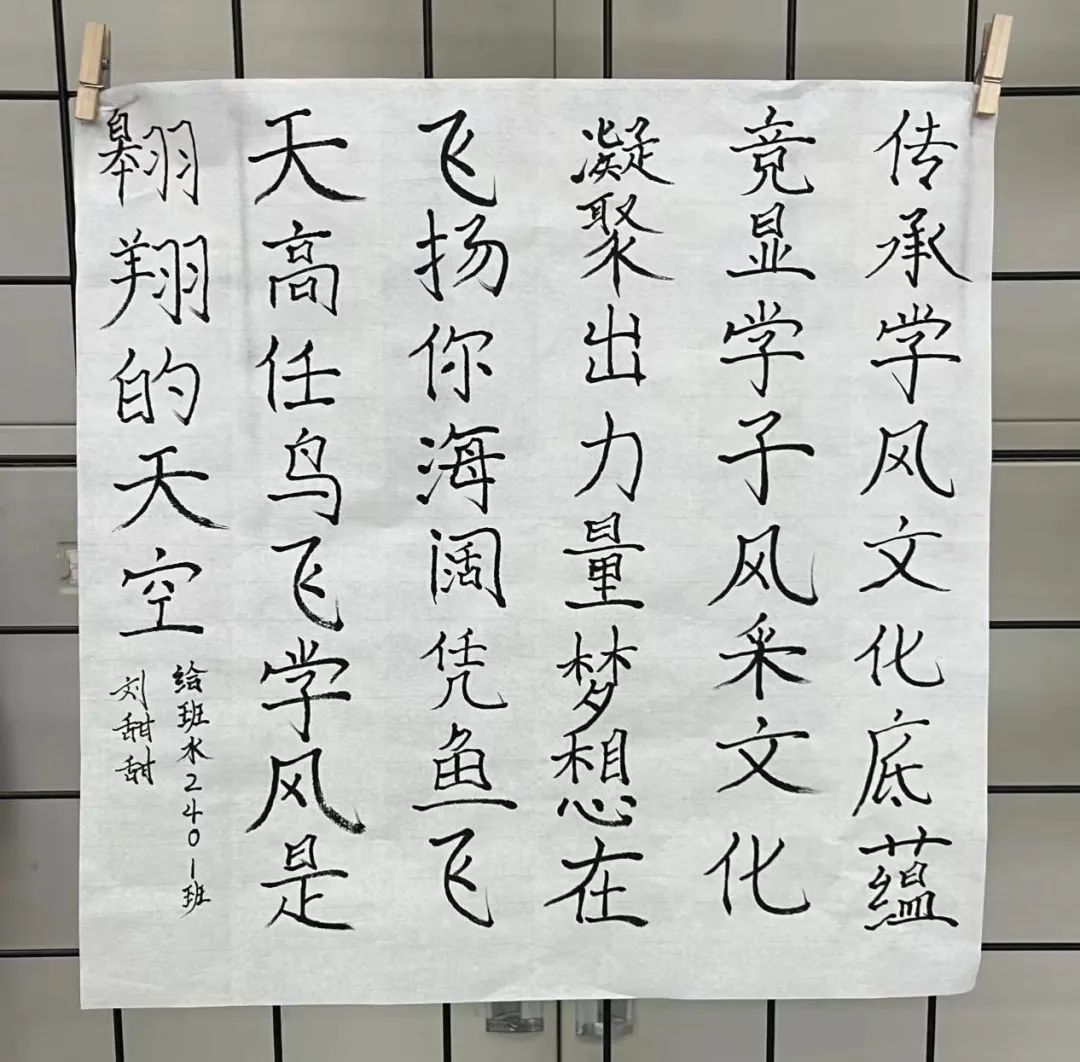 传承学风文化底蕴
竞显学子风采文化
凝聚出力量梦想在
飞扬你海阔凭鱼飞
天高任鸟飞学风是
翱翔的天空
给班水2401班
刘甜甜